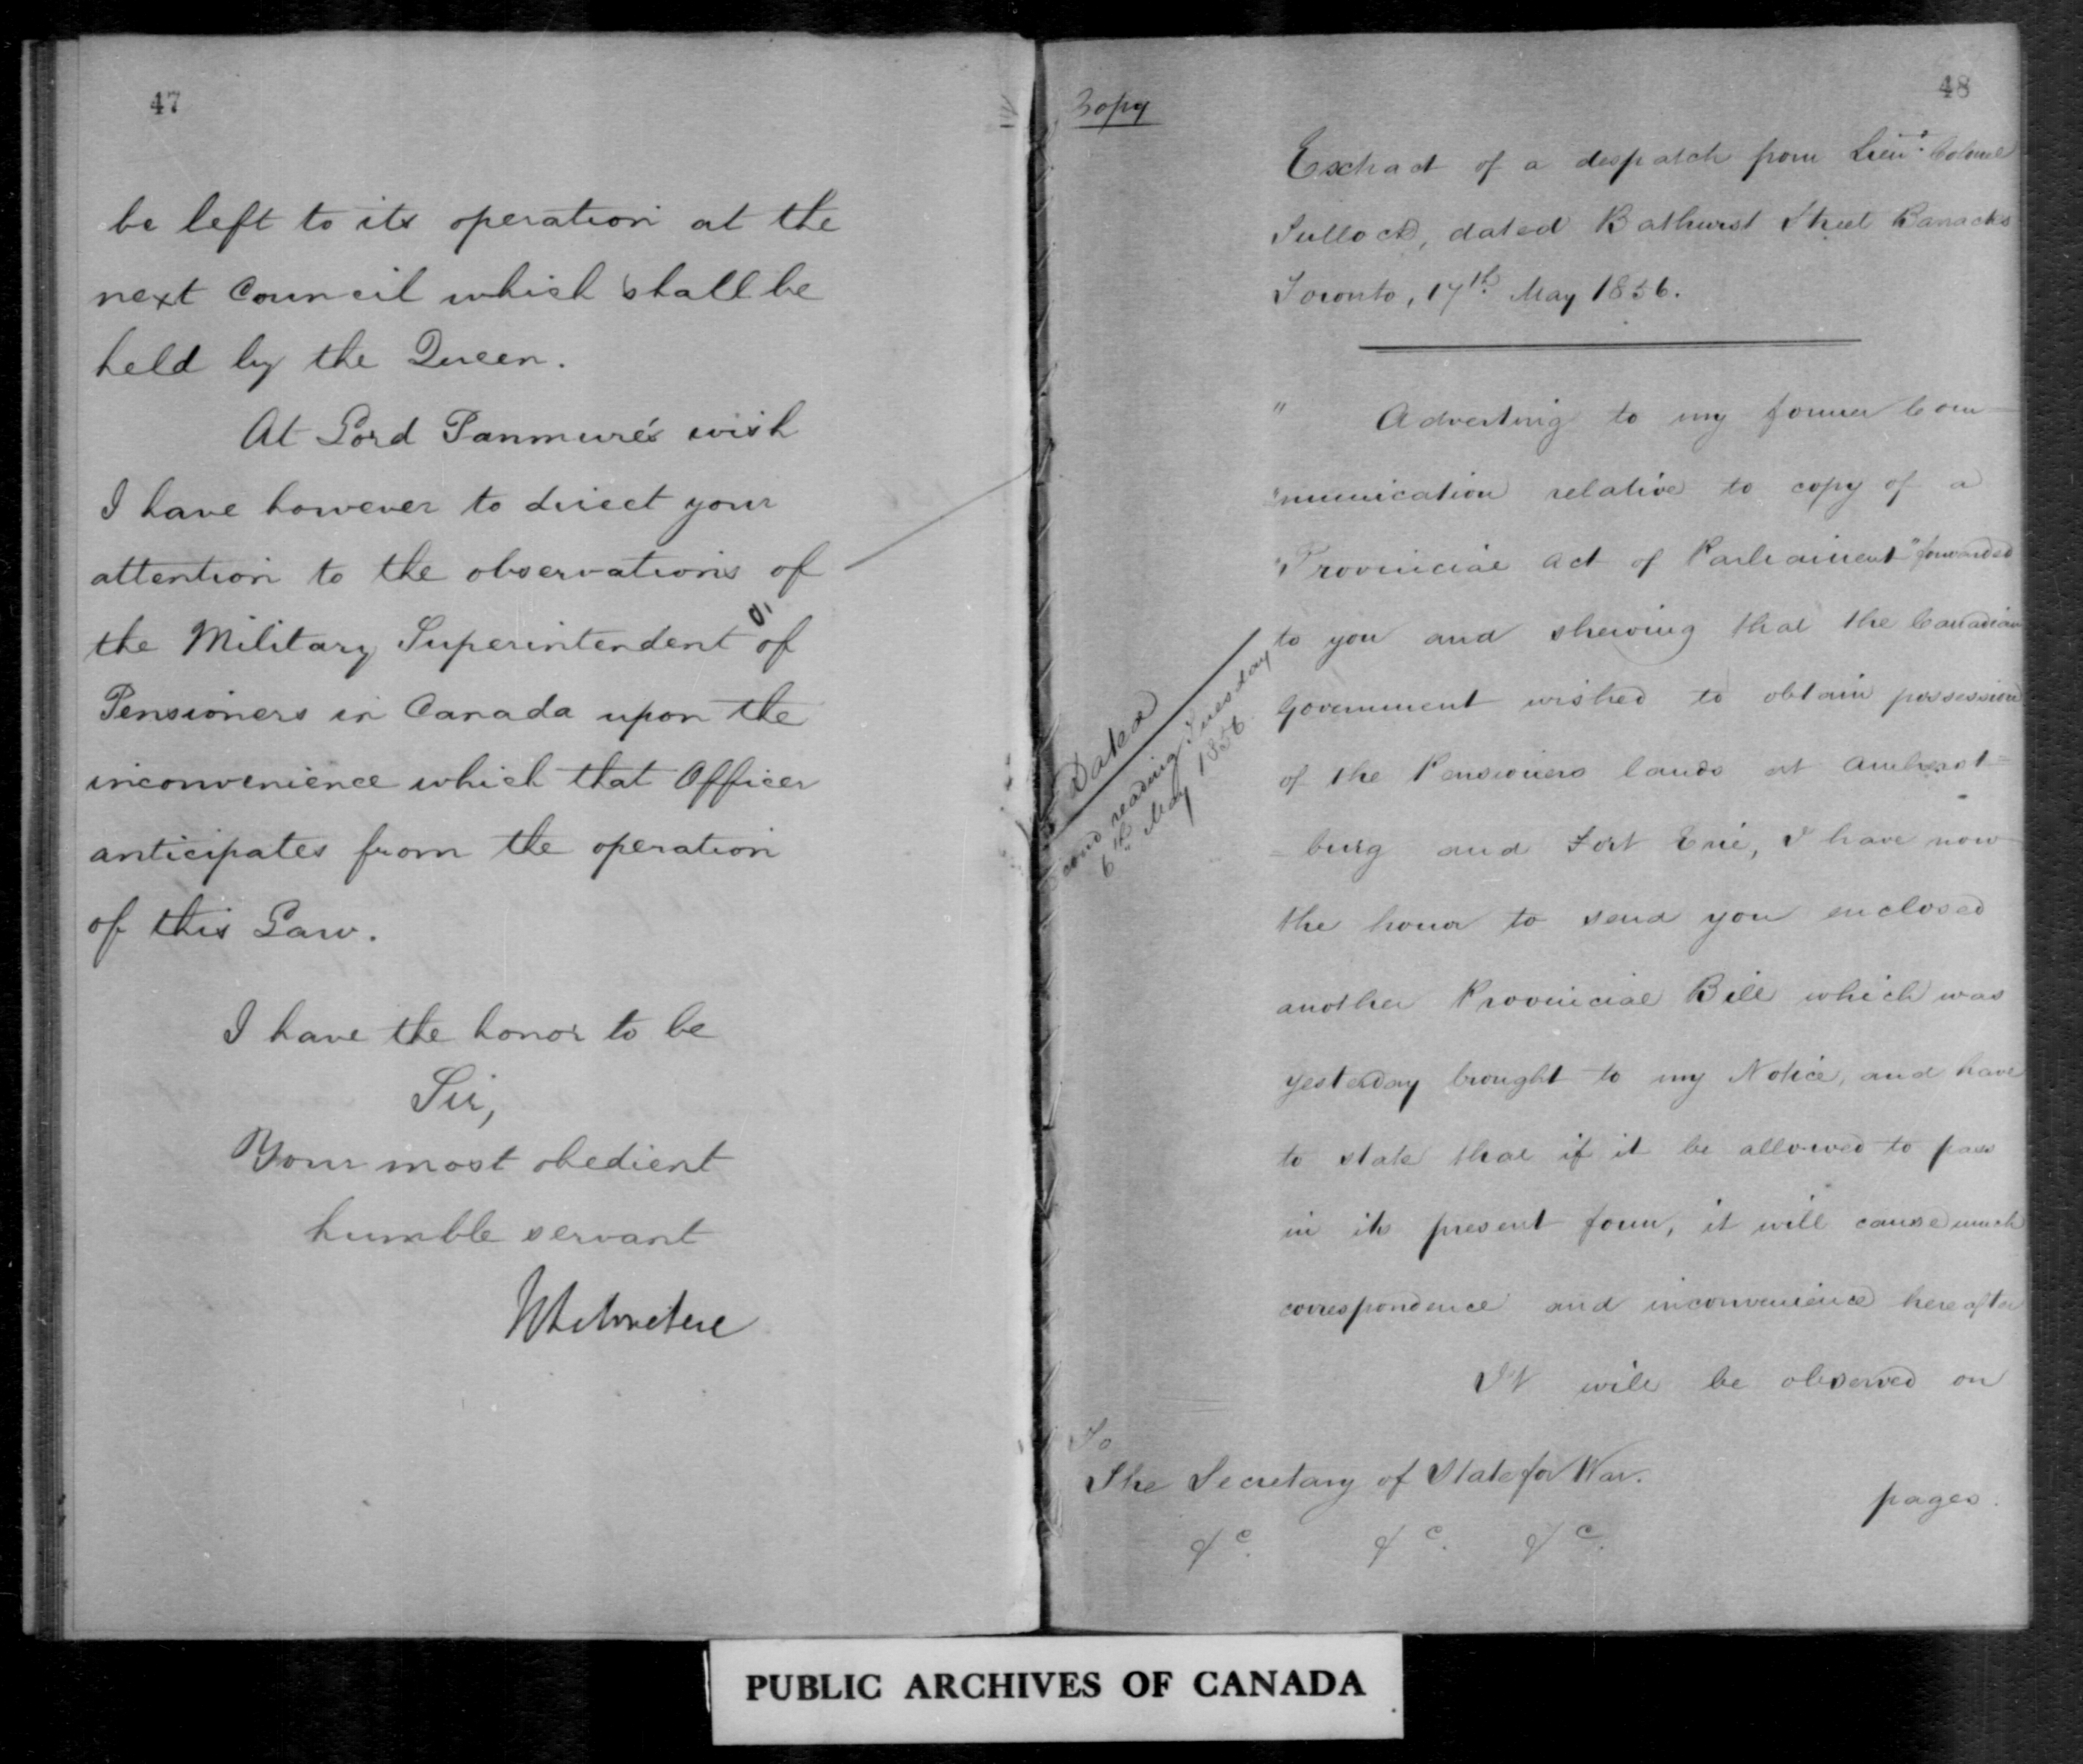 47
be left to its operation at the
next Council which shall be
held by the Queen.
At Lord Panmure's wish
I have however to direct your
attention to the observations of
the Military Superintendent of
Pensioners in Canada upon the
inconvenience which that Officer
anticipates from the operation
of this Law.
I have the honor to be
Sir,
Your most obedient
humble servant
48
Copy
Extract of a despatch from Lieut. Colonel
Tulloch, dated Bathurst Street Barracks
Toronto, 17th. May 1856.
" Adverting to my former Com-
"munication relative to copy of a
"Provincial Act of Parliament" forwarded
to you and shewing that the Canadian
Government wished to obtain possession
of the Pensioners lands at Amherst=
=burg and Fort Erie, I have now
the honor to send you enclosed
another Provincial Bill which was
yesterday brought to my Notice, and have
to state that if it be allowed to pass
in its present form, it will cause much
correspondence and inconvenience hereafter
It will be observed on
Dated
reading Tuesday
6th. May 1856.
To
The Secretary of State for War.
&c. &c. &c.
pages.
PUBLIC ARCHIVES OF CANADA